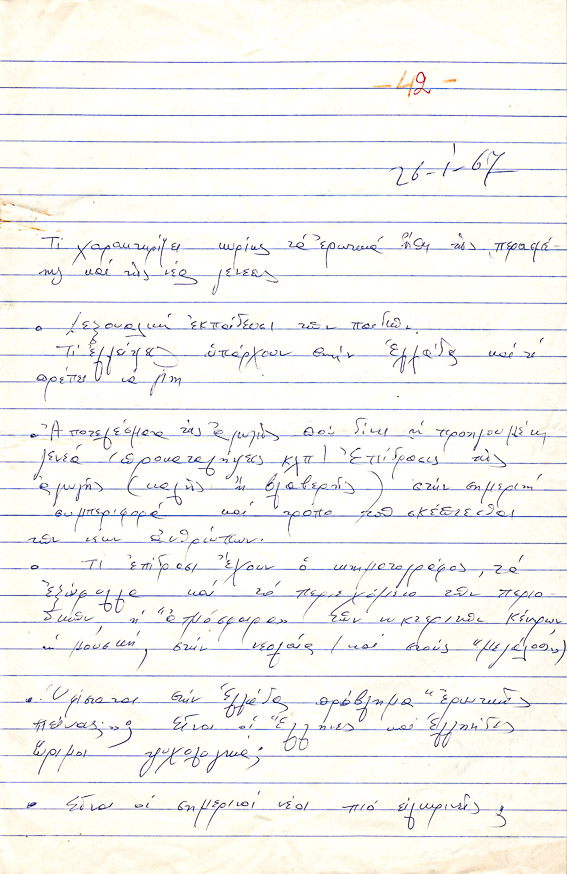 - 42 -
26-1-67
Τί χαρακτηρίζει κυρίως τά ἐρωτικά ἤθη τῆς περασμέ-
νης καί τῆς νέας γενεᾶς
• Σεξουαλική ἐκπαίδευσι τῶν παιδιῶν.
Τί ἐλλείψεις ὑπάρχουν στήν Ἑλλάδα καί τί
πρέπει νά γίνη
• Ἀποτελέσματα τῆς ἀγωγῆς πού δίνει ἡ προηγουμένη
γενεά (προκαταλήψεις κλπ) Ἐπίδρασις τῆς
ἀγωγῆς (καλῆς ἤ βλαβερῆς) στήν σημερινή
συμπεριφορά καί τρόπο τοῦ σκέπτεσθαι
τῶν νέων ἀνθρώπων.
• Τί ἐπίδρασι ἔχουν ὁ κινηματογράφος, τά
ἐξώφυλλα καί τό περιεχόμενο τῶν περιο-
δικῶν, ἡ "ἀτμόσφαιρα" τῶν νυκτερινῶν κέντρων
ἡ μουσική, στήν νεολαία (καί στούς "μεγάλους")
• Ὑφίσταται στήν Ἑλλάδα πρόβλημα "ἐρωτικῆς
πείνας"; Εἶναι οἱ Ἕλληνες καί Ἑλληνίδες
ὥριμοι ψυχολογικά;
• Εἶναι οἱ σημερινοί νέοι πιό εἰλικρινεῖς;